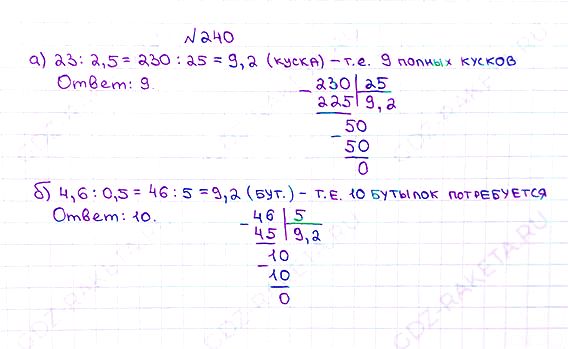 №240
а) 23 : 2,5 = 230 : 25 = 9,2 (куска) – т.е. 9 полных кусков
Ответ: 9.
– 230 | 25
225 | 9,2
– 50
50
0
б) 4,6 : 0,5 = 46 : 5 = 9,2 (бут.) – т.е. 10 бутылок потребуется
Ответ: 10.
– 46 | 5
45 | 9,2
– 10
10
0
GDZ-RAKETA.RU